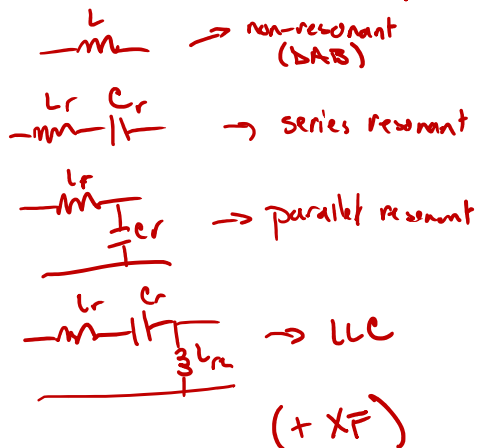 L → non-resonant
(DAB)
Lr Cr → series resonant
Lr
Cr → parallel resonant
Lr Cr → LLC
Lm
(+ XF)